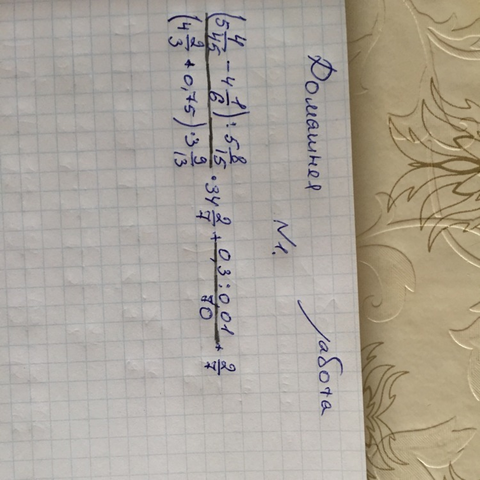 Домашняя работа
№1.
(5 4/45 - 4 1/6) : 5 8/15
(4 2/3 + 0,75) · 3 9/13 · 34 2/7 + 0,3 : 0,01 / 70 + 2/7